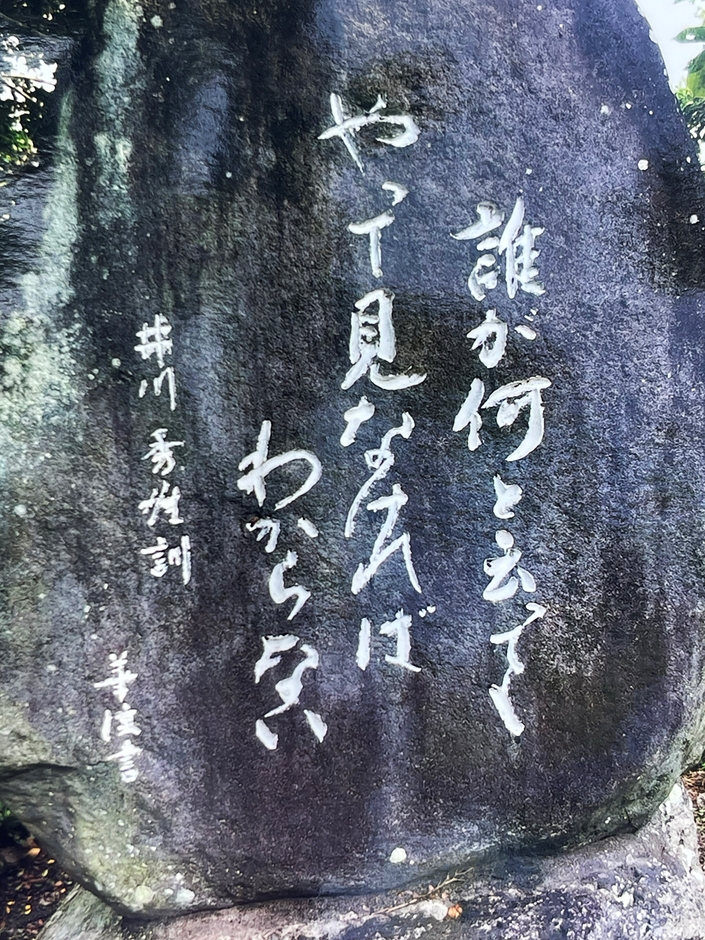 誰が何と云っても
やって見なければ
わからない
井川 秀雄訓